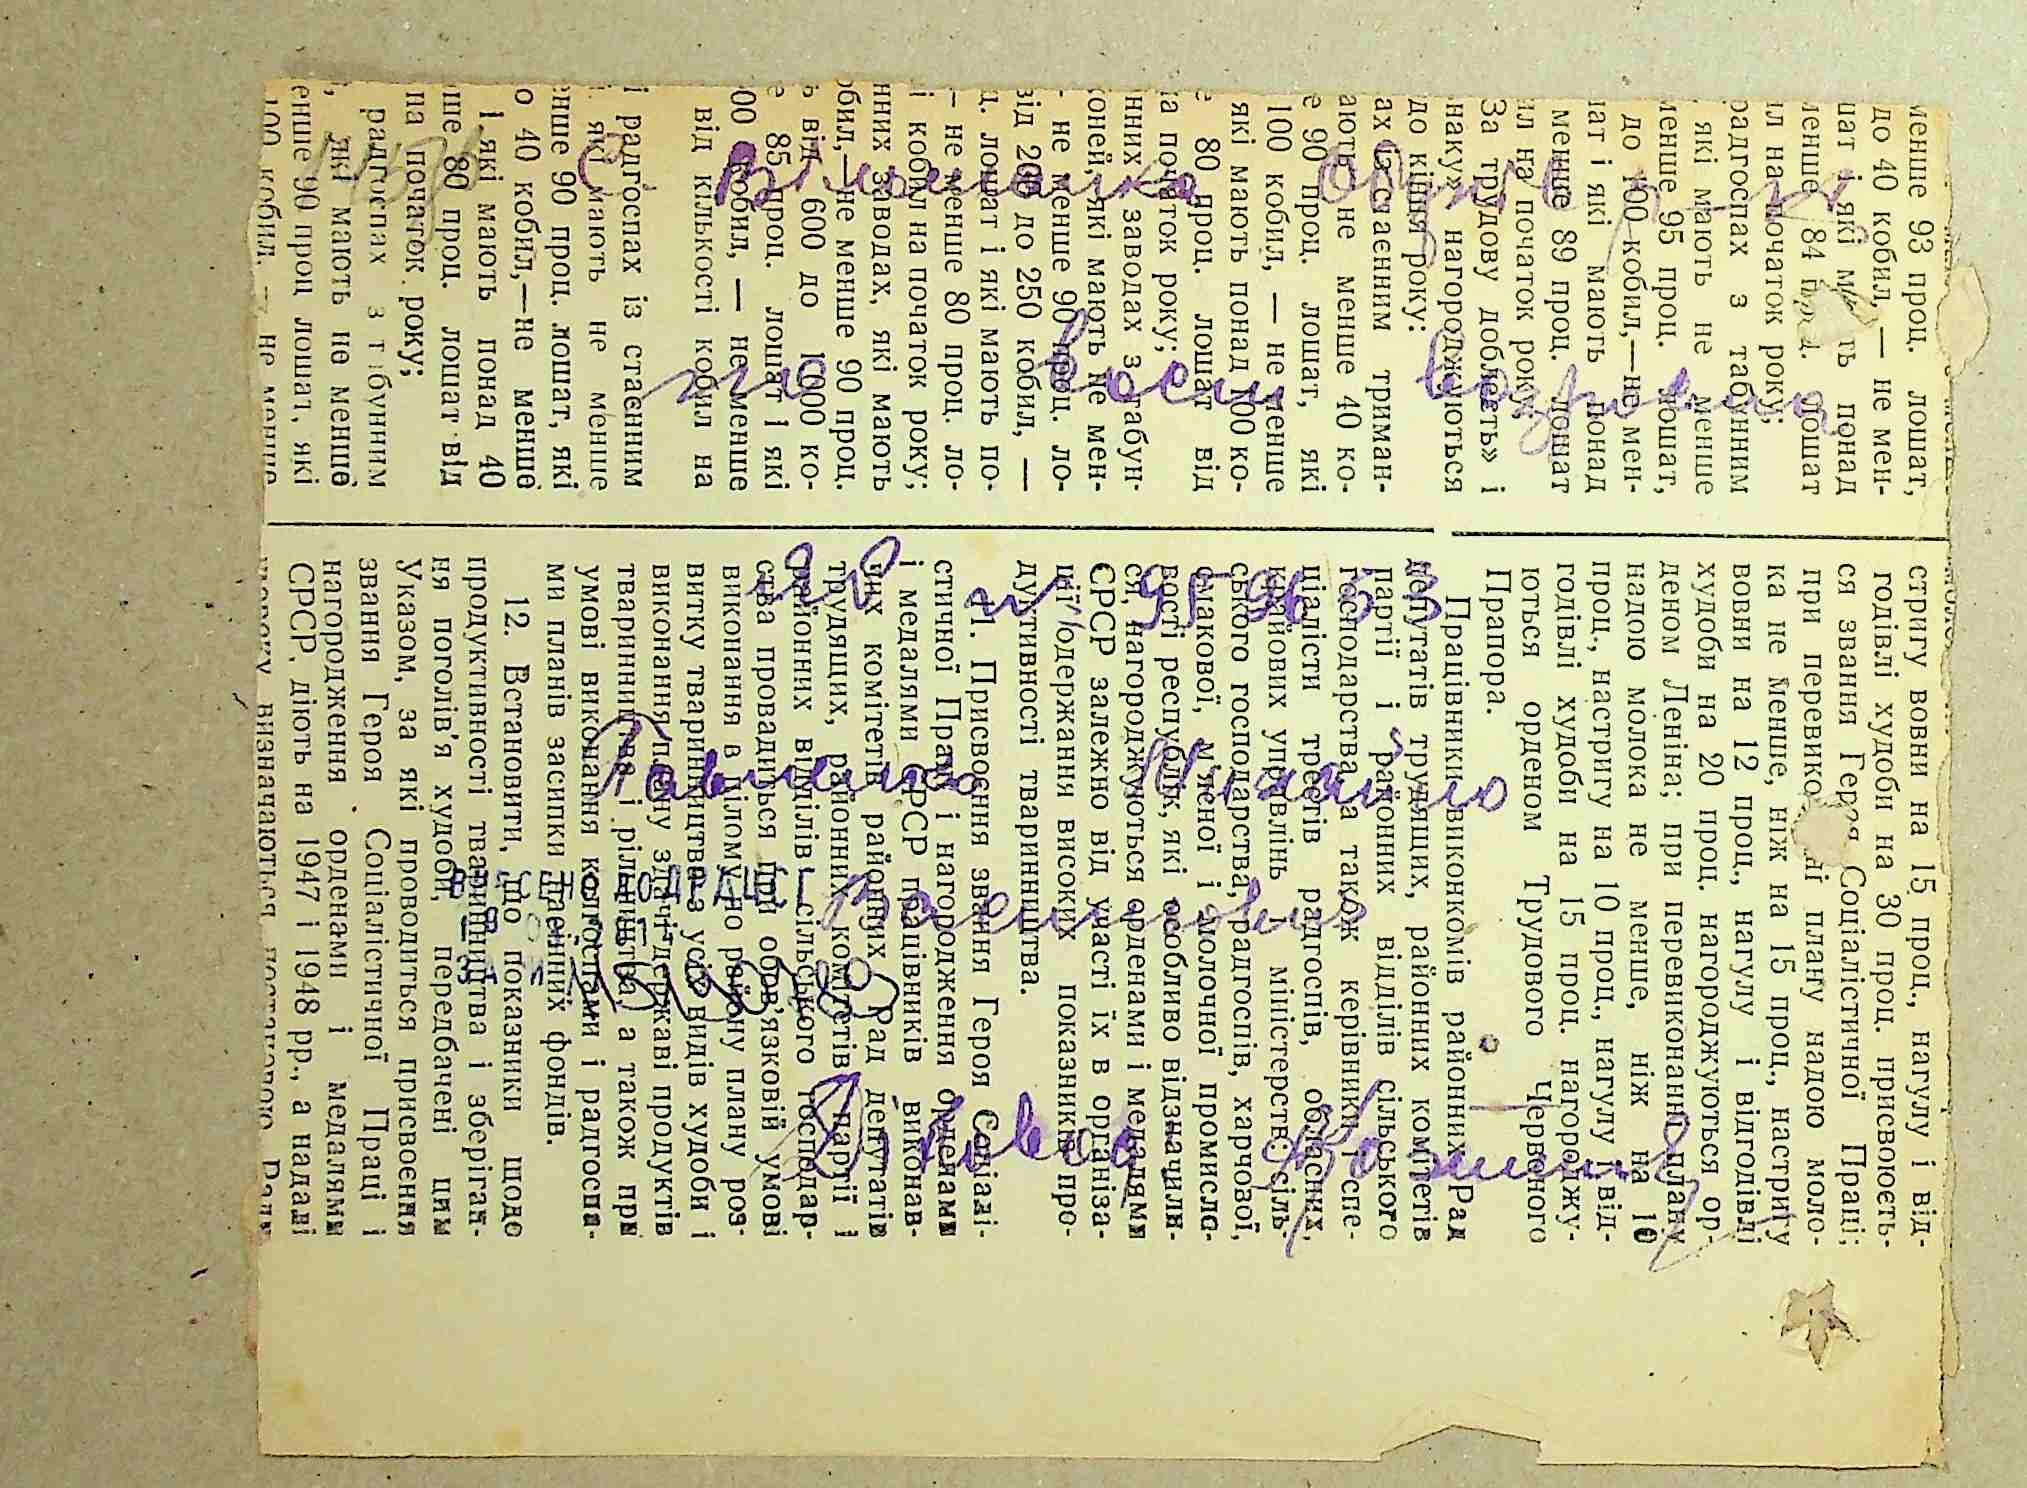 менше 93 проц. лошат,
до 40 кобил,— не мен-
шат і які м ть понад
менше 84 п . лошат
іл на початок року;
радгоспах з табунним
, які мають не менше
менше 95 проц. лошат,
до 100 кобил,—не мен-
шат і які мають понад
менше 89 проц. лошат
ил на початок року.
За трудову доблесть» і
знаку» нагороджуються
до кінця року:
ах із стаєнним триман-
ають не менше 40 ко-
е 90 проц. лошат, які
100 кобил, — не менше
які мають понад 100 ко-
е 80 проц. лошат від
на початок року;
нних заводах з табун-
коней, які мають не мен-
- не менше 90 проц. ло-
від 200 до 250 кобил, —
ц. лошат і які мають по-
— не менше 80 проц. ло-
і кобил на початок року;
нних заводах, які мають
обил,—не менше 90 проц.
ь від 600 до 1000 ко-
е 85 проц. лошат і які
000 кобил, — не менше
від кількості кобил на
і радгоспах із стаєнним
і, які мають не менше
енше 90 проц. лошат, які
о 40 кобил,—не менше
і які мають понад 40
нше 80 проц. лошат від
на початок року;
радгоспах з т бунним
, які мають не менше
енше 90 проц лошат, які
100 кобил. — не менше
стригу вовни на 15 проц., нагулу і від-
годівлі худоби на 30 проц. присвоюєть-
ся звання Героя Соціалістичної Праці;
при перевико ні плану надою моло-
ка не менше, ніж на 15 проц., настригу
вовни на 12 проц., нагулу і відгодівлі
худоби на 20 проц. нагороджуються ор-
деном Леніна; при перевиконанні плану
надою молока не менше, ніж на 10
проц., настригу на 10 проц., нагулу і від-
годівлі худоби на 15 проц. нагороджу-
ються орденом Трудового Червоного
Прапора.
Працівники виконкомів районних Рад
депутатів трудящих, районних комітетів
партії і районних відділів сільського
господарства, а також керівники і спе-
ціалісти трестів радгоспів, обласних,
крайових управлінь і міністерств: сіль-
ського господарства, радгоспів, харчової,
смакової, м'ясної і молочної промисло-
вості республік, які особливо відзначили-
ся, нагороджуються орденами і медалями
СРСР залежно від участі їх в організа-
ції одержання високих показників про-
дуктивності тваринництва.
11. Присвоєння звання Героя Соціалі-
стичної Праці і нагородження орденами
і медалями СРСР працівників виконав-
чих комітетів районних Рад депутатів
трудящих, районних комітетів партії і
районних відділів сільського господар-
ства провадиться при обов'язковій умові
виконання в цілому по району плану роз-
витку тваринництва з усіх видів худоби і
виконання плану здачі державі продуктів
тваринництва і рільництва, а також при
умові виконання колгоспами і радгоспа-
ми планів засипки насінних фондів.
12. Встановити, що показники щодо
продуктивності тваринництва і зберіган-
ня поголів'я худоби, передбачені цим
Указом, за які проводиться присвоєння
звання Героя Соціалістичної Праці і
нагородження орденами і медалями
СРСР, діють на 1947 і 1948 рр., а надалі
щороку визначаються постановою Ради
С
95963
Михайло